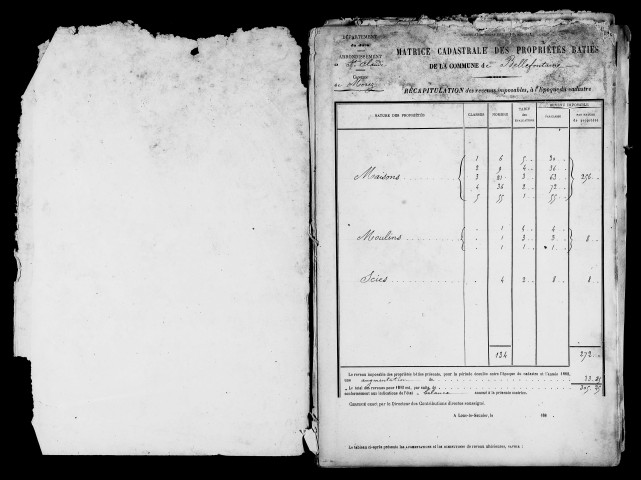 DÉPARTEMENT
du Jura
ARRONDISSEMENT
de St Claude
CANTON
de Morez
MATRICE CADASTRALE DES PROPRIÉTÉS BÂTIES
DE LA COMMUNE de Bellefontaine
RÉCAPITULATION des revenus imposables, à l'époque du cadastre
NATURE DES PROPRIÉTÉS CLASSES NOMBRE TARIF des ÉVALUATIONS REVENUS IMPOSABLES par classe par nature de propriétés
1 6 5 30
2 9 4 36
Maisons 3 21 3 63 256
4 36 2 72
5 55 1 55
1 4 4
Moulins 1 3 3 8
1 1 1
Scies 4 2 8 8
134 272
Le revenu imposable des propriétés bâties présente, pour la période écoulée entre l'époque du cadastre et l'année 1882,
une augmentation de 33.25
Le total des revenus pour 1882 est, par suite, de 305.25
conformément aux indications de l'état balance annexé à la présente matrice.
Constaté exact par le Directeur des Contributions directes soussigné.
A Lons-le-Saunier, le 188
Le tableau ci-après présente les AUGMENTATIONS et les DIMINUTIONS de revenu ultérieures, SAVOIR :